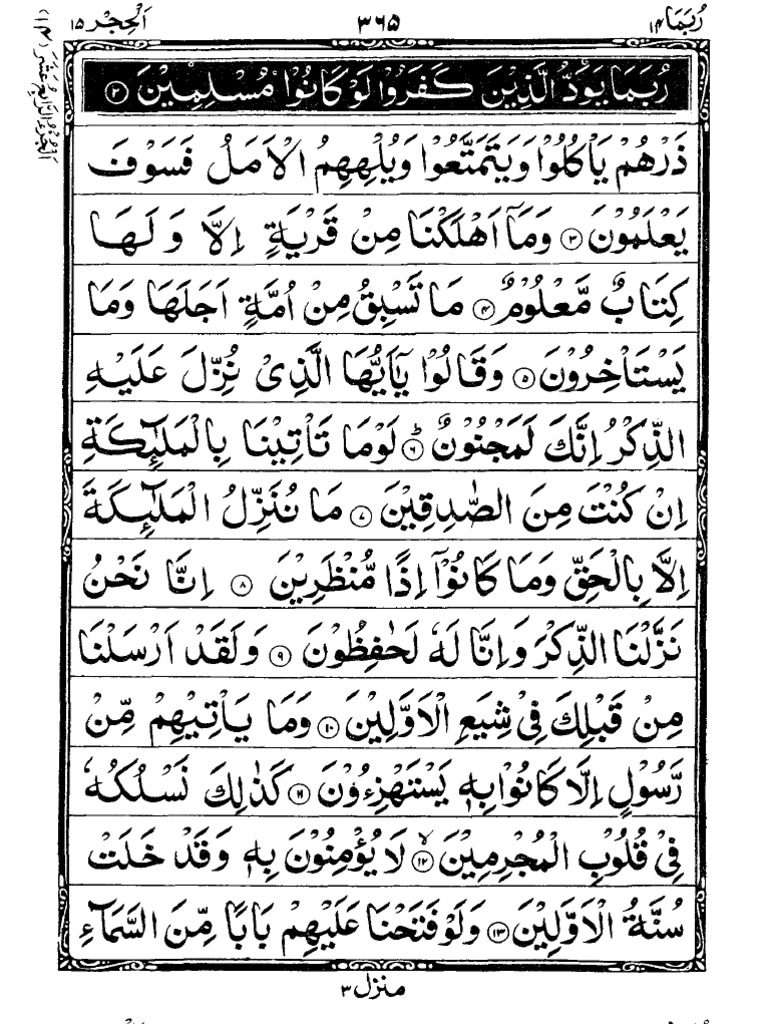 رُبَمَا ١٤
٣٦٥
اَلْحِجْر ١٥
رُبَمَا يَوَدُّ الَّذِيْنَ كَفَرُوْا لَوْ كَانُوْا مُسْلِمِيْنَ ②
ذَرْهُمْ يَاْكُلُوْا وَيَتَمَتَّعُوْا وَيُلْهِهِمُ الْاَمَلُ فَسَوْفَ
يَعْلَمُوْنَ ③ وَمَآ اَهْلَكْنَا مِنْ قَرْيَةٍ اِلَّا وَلَهَا
كِتَابٌ مَّعْلُوْمٌ ④ مَا تَسْبِقُ مِنْ اُمَّةٍ اَجَلَهَا وَمَا
يَسْتَاْخِرُوْنَ ⑤ وَقَالُوْا يٰٓاَيُّهَا الَّذِىْ نُزِّلَ عَلَيْهِ
الذِّكْرُ اِنَّكَ لَمَجْنُوْنٌ ⑥ؕ لَوْمَا تَاْتِيْنَا بِالْمَلٰٓئِكَةِ
اِنْ كُنْتَ مِنَ الصّٰدِقِيْنَ ⑦ مَا نُنَزِّلُ الْمَلٰٓئِكَةَ
اِلَّا بِالْحَقِّ وَمَا كَانُوْٓا اِذًا مُّنْظَرِيْنَ ⑧ اِنَّا نَحْنُ
نَزَّلْنَا الذِّكْرَ وَاِنَّا لَهٗ لَحٰفِظُوْنَ ⑨ وَلَقَدْ اَرْسَلْنَا
مِنْ قَبْلِكَ فِيْ شِيَعِ الْاَوَّلِيْنَ ⑩ وَمَا يَاْتِيْهِمْ مِّنْ
رَّسُوْلٍ اِلَّا كَانُوْا بِهٖ يَسْتَهْزِءُوْنَ ⑪ كَذٰلِكَ نَسْلُكُهٗ
فِيْ قُلُوْبِ الْمُجْرِمِيْنَ ⑫ۙ لَا يُؤْمِنُوْنَ بِهٖ وَقَدْ خَلَتْ
سُنَّةُ الْاَوَّلِيْنَ ⑬ وَلَوْ فَتَحْنَا عَلَيْهِمْ بَابًا مِّنَ السَّمَآءِ
منزل ٣